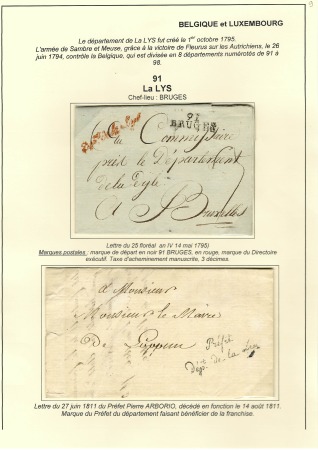 BELGIQUE et LUXEMBOURG
Le département de La LYS fut créé le 1er octobre 1795.
L'armée de Sambre et Meuse, grâce à la victoire de Fleurus sur les Autrichiens, le 26
juin 1794, contrôle la Belgique, qui est divisée en 8 départements numérotés de 91 à
98.
91
La LYS
Chef-lieu : BRUGES
91
BRUGES
Au Commissaire
près le Département
de la Dyle
A Bruxelles
Lettre du 25 floréal an IV 14 mai 1795)
Marques postales : marque de départ en noir 91 BRUGES, en rouge, marque du Directoire
exécutif. Taxe d'acheminement manuscrite, 3 décimes.
à Monsieur
Monsieur le Maire
De
Préfet
Dépt de la Lys
Lettre du 27 juin 1811 du Préfet Pierre ARBORIO, décédé en fonction le 14 août 1811.
Marque du Préfet du département faisant bénéficier de la franchise.